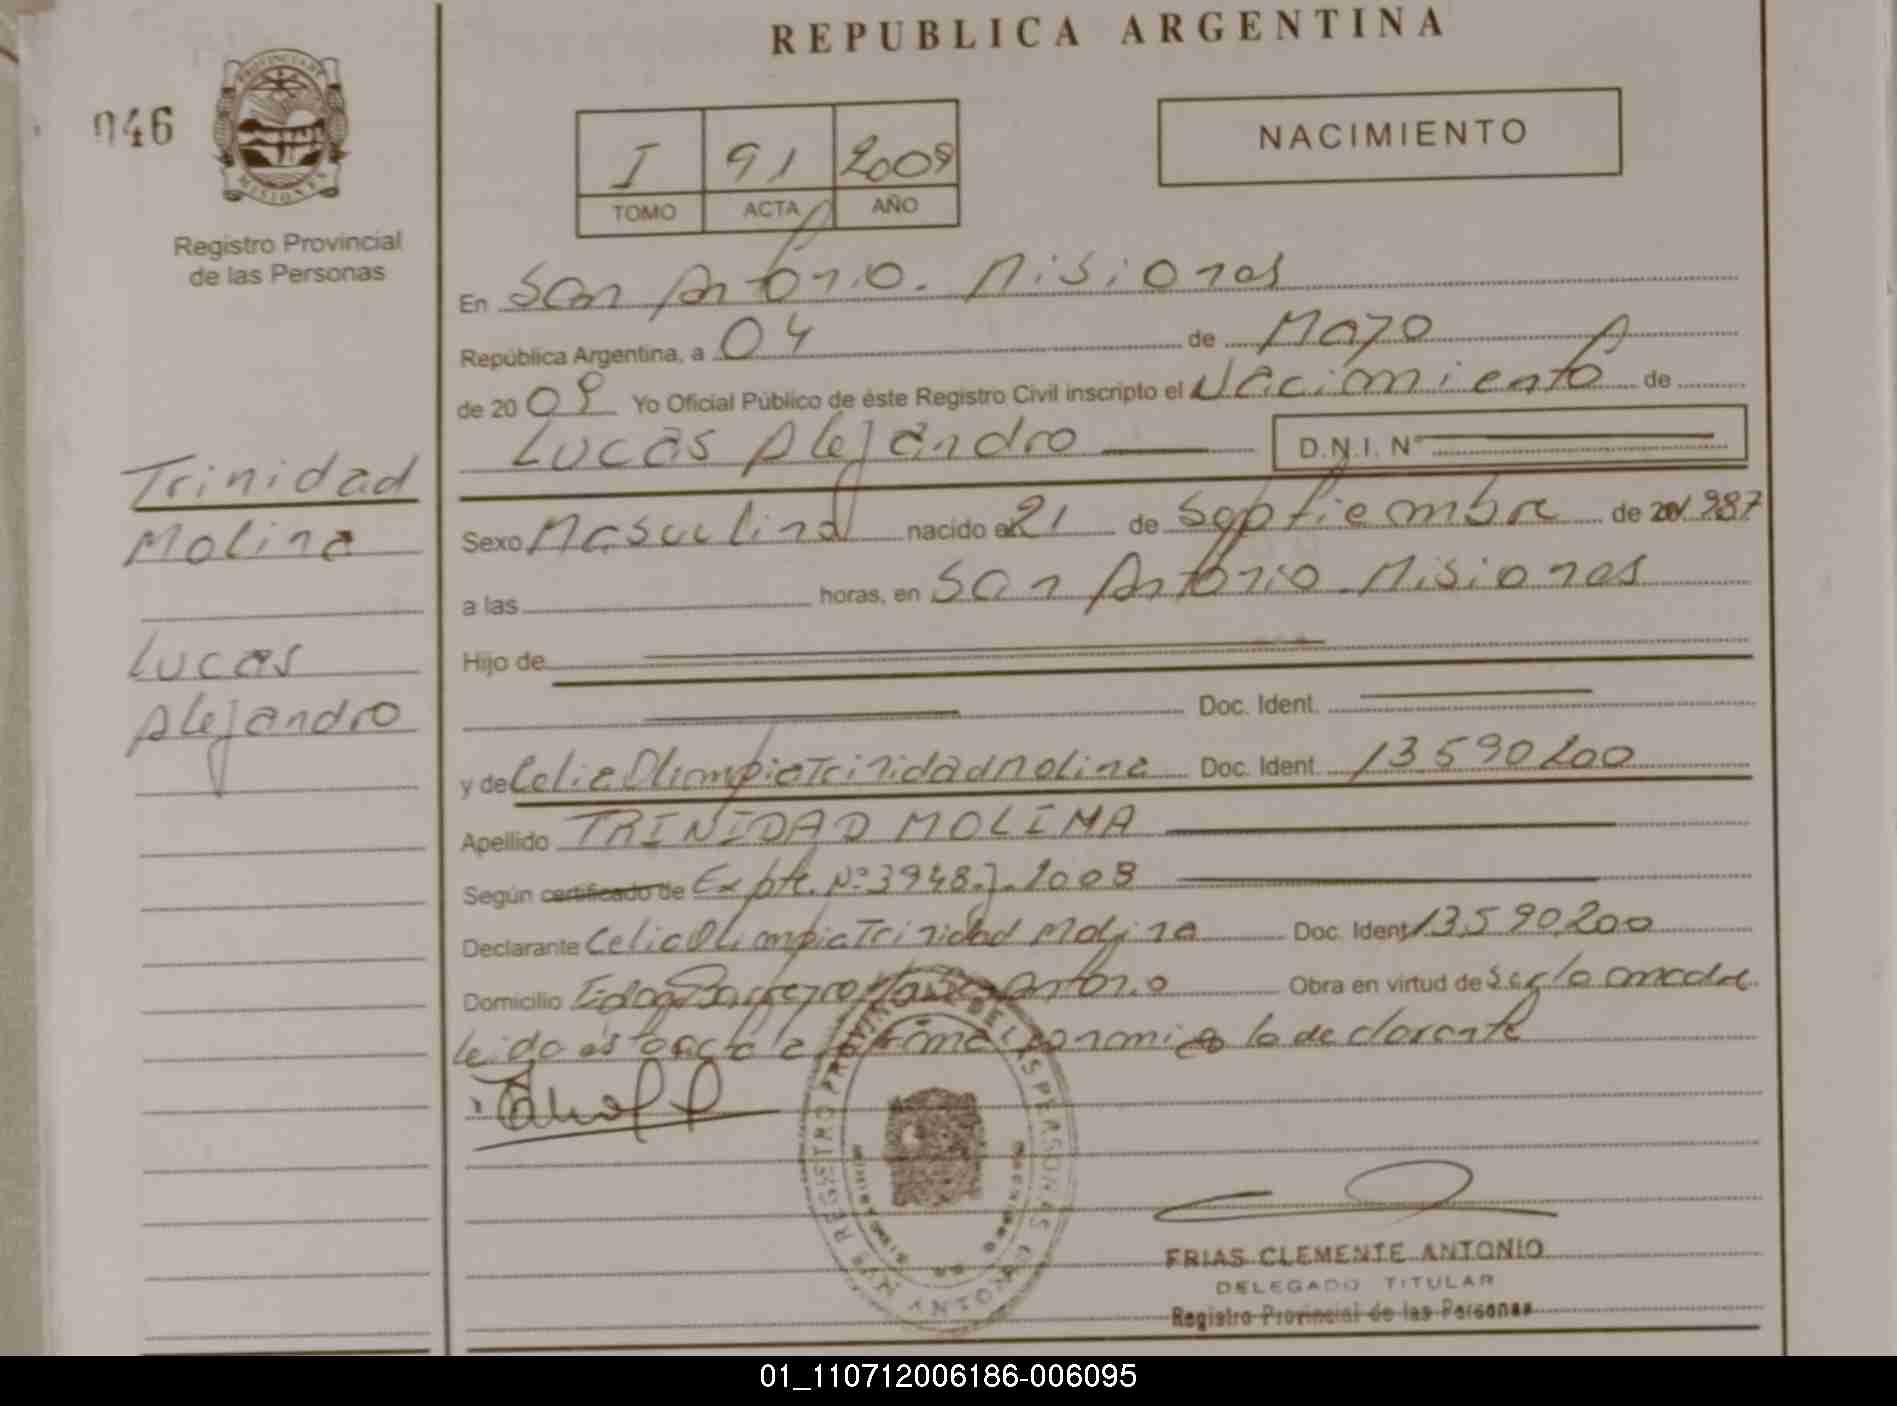 REPUBLICA ARGENTINA
046
PROVINCIA DE MISIONES
Registro Provincial
de las Personas
I 91 2009
TOMO ACTA AÑO
NACIMIENTO
En San Antonio. Misiones
República Argentina, a 04 de Mayo
de 2009 Yo Oficial Público de éste Registro Civil inscripto el Nacimiento de
Lucas Alejandro D.N.I. Nº
Trinidad
Molina
Lucas
Alejandro
Sexo Masculino nacido el 21 de Septiembre de 1.987
a las horas, en San Antonio Misiones
Hijo de
Doc. Ident.
y de Celia Olimpia Trinidad Molina Doc. Ident. 13590200
Apellido TRINIDAD MOLINA
Según certificado de Expte. Nº 3948.J.2008
Declarante Celia Olimpia Trinidad Molina Doc. Ident. 13.590.200
Domicilio San Antonio Obra en virtud de ser la madre
leido la declarante
REGISTRO PROVINCIAL DE LAS PERSONAS
SAN ANTONIO MNES
FRIAS CLEMENTE ANTONIO
DELEGADO TITULAR
Registro Provincial de las Personas
01_110712006186-006095